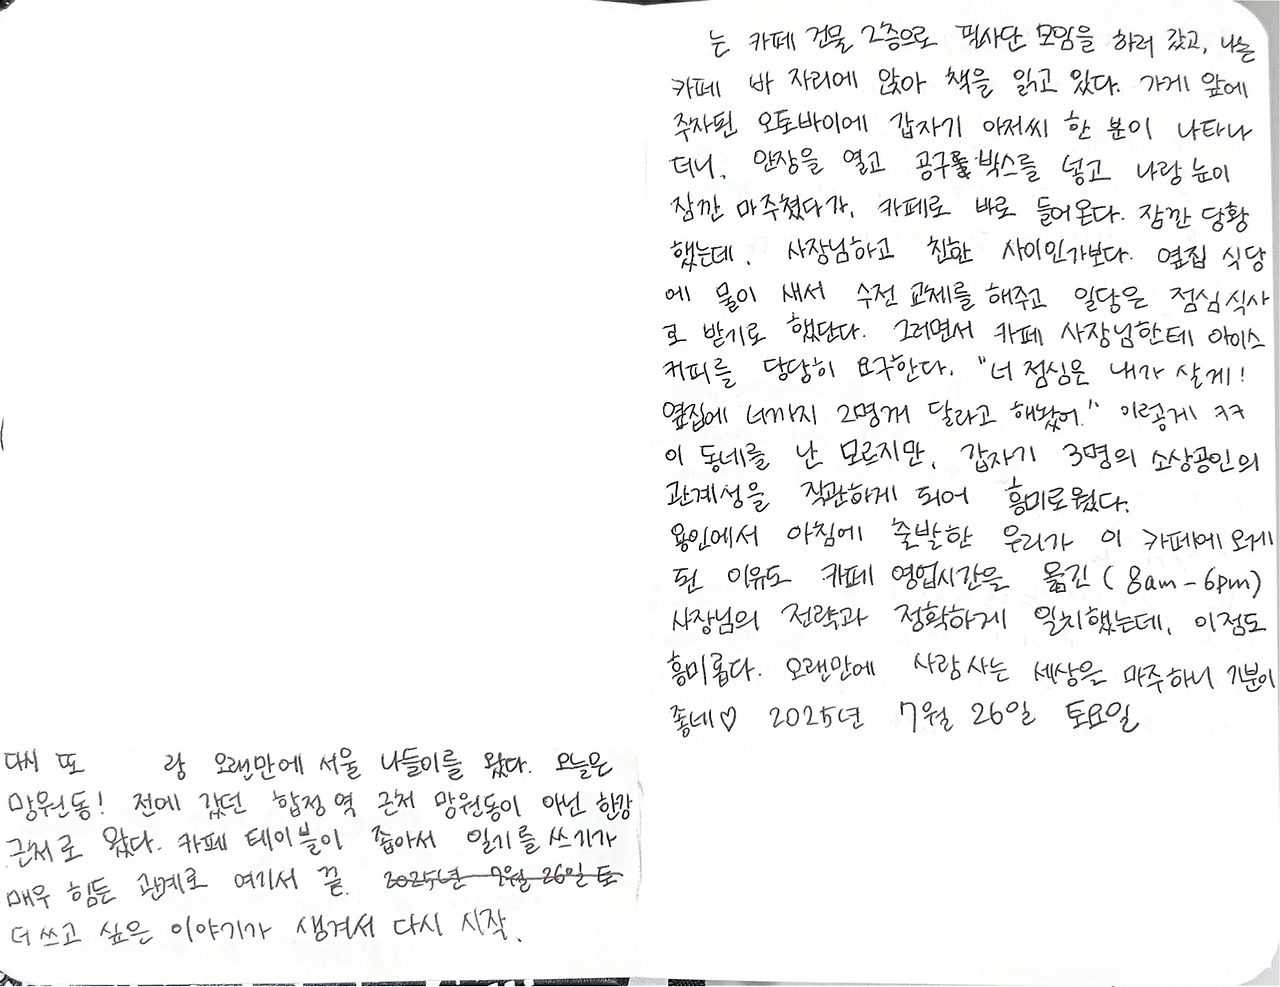 다시 또 랑 오랜만에 서울 나들이를 왔다. 오늘은
망원동! 전에 갔던 합정역 근처 망원동이 아닌 한강
근처로 왔다. 카페 테이블이 좁아서 일기를 쓰기가
매우 힘든 관계로 여기서 끝. 2025년 7월 26일 토
더 쓰고 싶은 이야기가 생겨서 다시 시작.
는 카페 건물 2층으로 필사단 모임을 하러 갔고, 나는
카페 바 자리에 앉아 책을 읽고 있었다. 가게 앞에
주차된 오토바이에 갑자기 아저씨 한 분이 나타나
더니, 안장을 열고 공구 박스를 넣고 나랑 눈이
잠깐 마주쳤다가, 카페로 바로 들어온다. 잠깐 당황
했는데, 사장님하고 친한 사이인가보다. 옆집 식당
에 물이 새서 수전 교체를 해주고 일당은 점심식사
로 받기로 했단다. 그러면서 카페 사장님한테 아이스
커피를 당당히 요구한다. "너 점심은 내가 살게!
옆집에 너까지 2명꺼 달라고 해놨어." 이렇게 ㅋㅋ
이 동네를 난 모르지만, 갑자기 3명의 소상공인의
관계성을 직관하게 되어 흥미로웠다.
용인에서 아침에 출발한 우리가 이 카페에 오게
된 이유도 카페 영업시간을 옮긴 (8am-6pm)
사장님의 전략과 정확하게 일치했는데, 이점도
흥미롭다. 오랜만에 사람사는 세상을 마주하니 기분이
좋네♡ 2025년 7월 26일 토요일